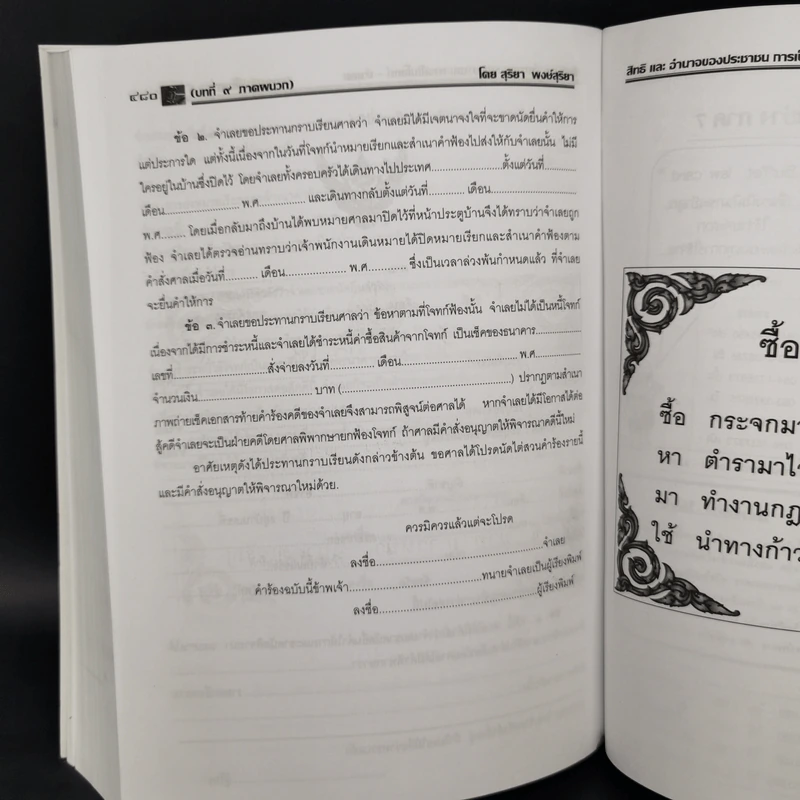 ๔๘๐ (บทที่ ๙ ภาคผนวก) โดย สุริยา พงษ์สุริยา
ข้อ ๒. จำเลยขอประทานกราบเรียนศาลว่า จำเลยมิได้มีเจตนาจงใจที่จะขาดนัดยื่นคำให้การ
แต่ประการใด แต่ทั้งนี้เนื่องจากในวันที่โจทก์นำหมายเรียกและสำเนาคำฟ้องไปส่งให้กับจำเลยนั้น ไม่มี
ใครอยู่ในบ้านซึ่งปิดไว้ โดยจำเลยทั้งครอบครัวได้เดินทางไปประเทศ....................ตั้งแต่วันที่..........
เดือน....................... พ.ศ............... และเดินทางกลับตั้งแต่วันที่........... เดือน........................
พ.ศ........ โดยเมื่อกลับมาถึงบ้านได้พบหมายศาลมาปิดไว้ที่หน้าประตูบ้านจึงได้ทราบว่าจำเลยถูก
ฟ้อง จำเลยได้ตรวจอ่านทราบว่าเจ้าพนักงานเดินหมายได้ปิดหมายเรียกและสำเนาคำฟ้องตาม
คำสั่งศาลเมื่อวันที่.......... เดือน................... พ.ศ............ ซึ่งเป็นเวลาล่วงพ้นกำหนดแล้ว ที่จำเลย
จะยื่นคำให้การ
ข้อ ๓. จำเลยขอประทานกราบเรียนศาลว่า ข้อหาตามที่โจทก์ฟ้องนั้น จำเลยไม่ได้เป็นหนี้โจทก์
เนื่องจากได้มีการชำระหนี้และจำเลยได้ชำระหนี้ค่าซื้อสินค้าจากโจทก์ เป็นเช็คของธนาคาร..............
เลขที่............................สั่งจ่ายลงวันที่.............. เดือน................................... พ.ศ..............
จำนวนเงิน................................... บาท (....................................................) ปรากฏตามสำเนา
ภาพถ่ายเช็คเอกสารท้ายคำร้องคดีของจำเลยจึงสามารถพิสูจน์ต่อศาลได้ หากจำเลยได้มีโอกาสได้ต่อ
สู้คดีจำเลยจะเป็นฝ่ายคดีโดยศาลพิพากษายกฟ้องโจทก์ ถ้าศาลมีคำสั่งอนุญาตให้พิจารณาคดีนี้ใหม่
อาศัยเหตุดังได้ประทานกราบเรียนดังกล่าวข้างต้น ขอศาลได้โปรดนัดไต่สวนคำร้องรายนี้
และมีคำสั่งอนุญาตให้พิจารณาใหม่ด้วย.
ควรมิควรแล้วแต่จะโปรด
ลงชื่อ..................................................จำเลย
คำร้องฉบับนี้ข้าพเจ้า........................................ทนายจำเลยเป็นผู้เรียงพิมพ์
ลงชื่อ................................................ผู้เรียงพิมพ์
สิทธิ และ อำนาจของประชาชน
ซื้อ
ซื้อ กระจกมา
หา ตำรามาไ
มา ทำงานกฎ
ใช้ นำทางก้าว